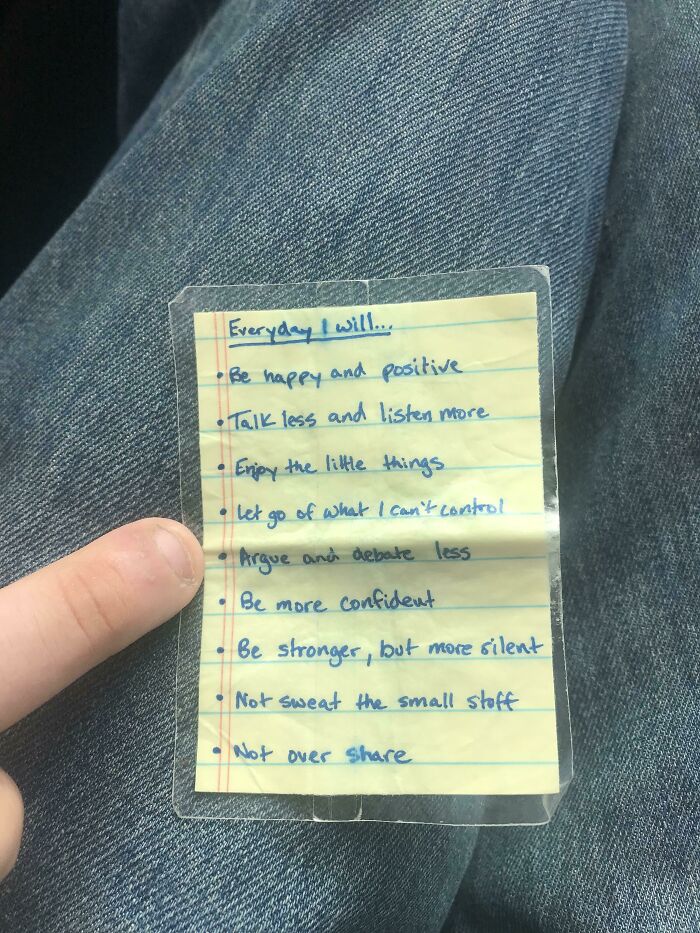 Everyday I will...
• Be happy and positive
• Talk less and listen more
• Enjoy the little things
• Let go of what I can't control
• Argue and debate less
• Be more confident
• Be stronger, but more silent
• Not sweat the small stuff
• Not over share